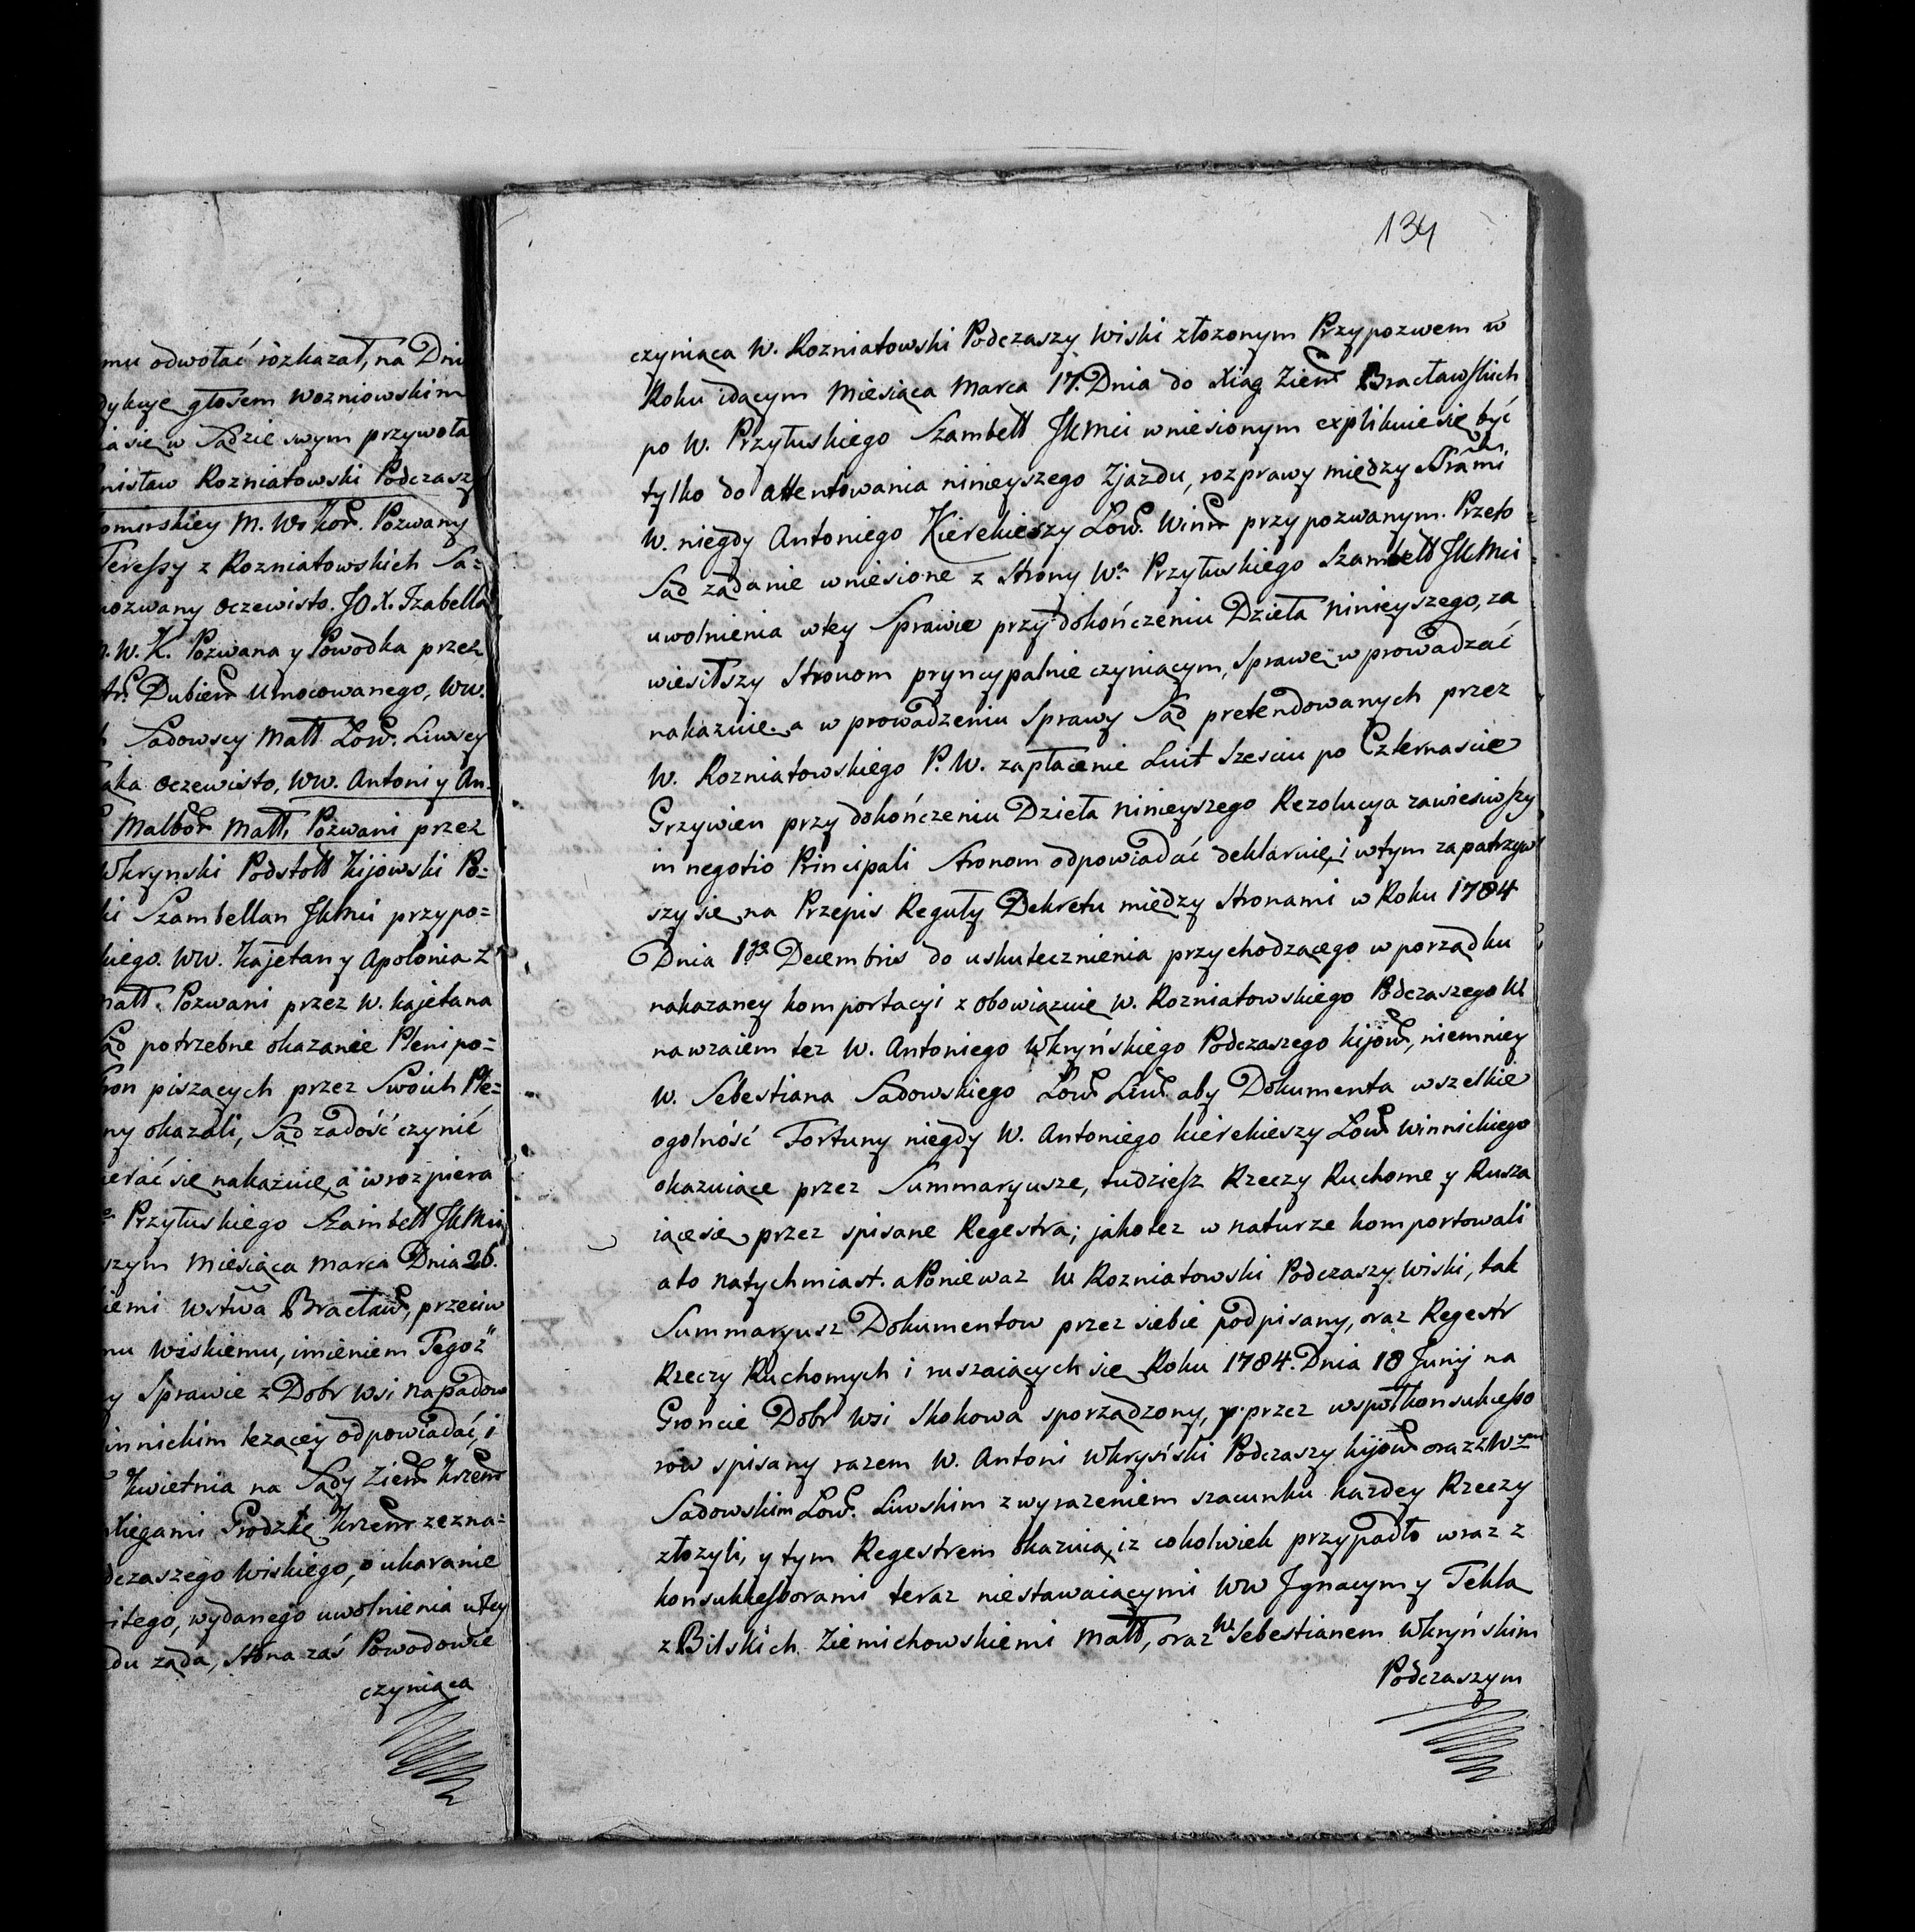 mu odwołać rozkazał, na Dni
dykuje głosem Wozniowskim
ia się w Sądzie swym przywoła
nisław Rozniatowski Podczasz
omirskiey M. Wo Kor. Pozwany
Teressy z Rozniatowskich Sa=
pozwany oczewisto. JO.X. Izabella
W. K. Pozwana y Powodka przez
Dubien Umocowanego, WW.
Sadowscy Małł Łow. Liwscy
aka oczewisto, WW. Antoni y An=
Malbor Małł, Pozwani przez
Wkrynski Podstoli Kijowski Po=
ki Szambellan JKMci przypo=
kiego. WW. Kajetan y Apolonia z
małł. Pozwani przez W. Kajetana
ąd potrzebne okazanie Plenipo=
ron piszących przez Swoich Ple=
ny okazali, Sąd zadość czynić
ierać się nakazuie, a w rozpiera
Przyłuskiego Szambell JKMci
szym Miesiąca Marca Dnia 26.
iemi Wstwa Bracław, przeciw
mu Wiskiemu, imieniem Tegoż
y Sprawie z Dobr Wsi Napadow
innickim leżącey odpowiadać, i
Kwietnia na Sądy Ziem Krzem
xięgami Grodzkie Krzem zezna=
dczaszego Wiskiego, o ukaranie
itego, wydanego uwolnienia w tey
du żąda, Strona zaś Powodowie
czyniąca
134
czyniąca W. Rozniatowski Podczaszy Wiski złożonym Przypozwem w
Roku idącym Miesiąca Marca 17. Dnia do Xiąg Ziem Bracławskich
po W. Przyłuskiego Szambell JKMci wniesionym explikuie się być
tylko do attentowania ninieyszego Zjazdu, rozprawy między Stronami
W. niegdy Antoniego Kierekieszy Łow. Winn przypozwanym. Przeto
Sąd żądanie wniesione z Strony We Przyłuskiego Szambell JKMci
uwolnienia w tey Sprawie przy dokończeniu Dzieła ninieyszego, za
wiesiłszy Stronom pryncypalnie czyniącym, Sprawę wprowadzać
nakazuie. a w prowadzeniu Sprawy Sąd pretendowanych przez
W. Rozniatowskiego P. W. zapłacenie Luit Sześciu po Czternaście
Grzywien przy dokończeniu Dzieła ninieyszego Rezolucya zawiesiwszy
in negotio Principali Stronom odpowiadać deklaruie, i w tym zapatrzyw
szy się na Przepis Reguły Dekretu między Stronami w Roku 1784
Dnia 1go Decembris do uskutecznienia przychodzącego w porządku
nakazaney komportacyi zobowiązuie W. Rozniatowskiego Podczaszego W.
nawzaiem też W. Antoniego Wkryńskiego Podczaszego Kijow, niemniey
W. Sebestiana Sadowskiego Łow Liw aby Dokumenta wszelkie
ogolność Fortuny niegdy W. Antoniego Kierekieszy Łow Winnickiego
okazuiące przez Summaryusze, tudziesz Rzeczy Ruchome y Rusza
iące się przez spisane Regestra; jako też w naturze komportowali
a to natychmiast. a Ponieważ W. Rozniatowski Podczaszy Wiski, tak
Summaryusz Dokumentow przez siebie podpisany, oraz Regestr
Rzeczy Ruchomych i ruszaiących się Roku 1784. Dnia 18 Junij na
Groncie Dobr Wsi Skokowa sporządzony, y przez wspołkonsukcesso
row spisany razem W. Antoni Wkryński Podczaszy Kijow oraz z Wym
Sadowskim Łow. Liwskim z wyrażeniem szacunku każdey Rzeczy
złożyli, y tym Regestrem okazuią, iż cokolwiek przypadło wraz z
konsukkessorami teraz niestawaiącymi WW Ignacym y Teklą
z Bilskich Ziemichowskiemi Małł, oraz W. Sebestianem Wkryńskim
Podczaszym